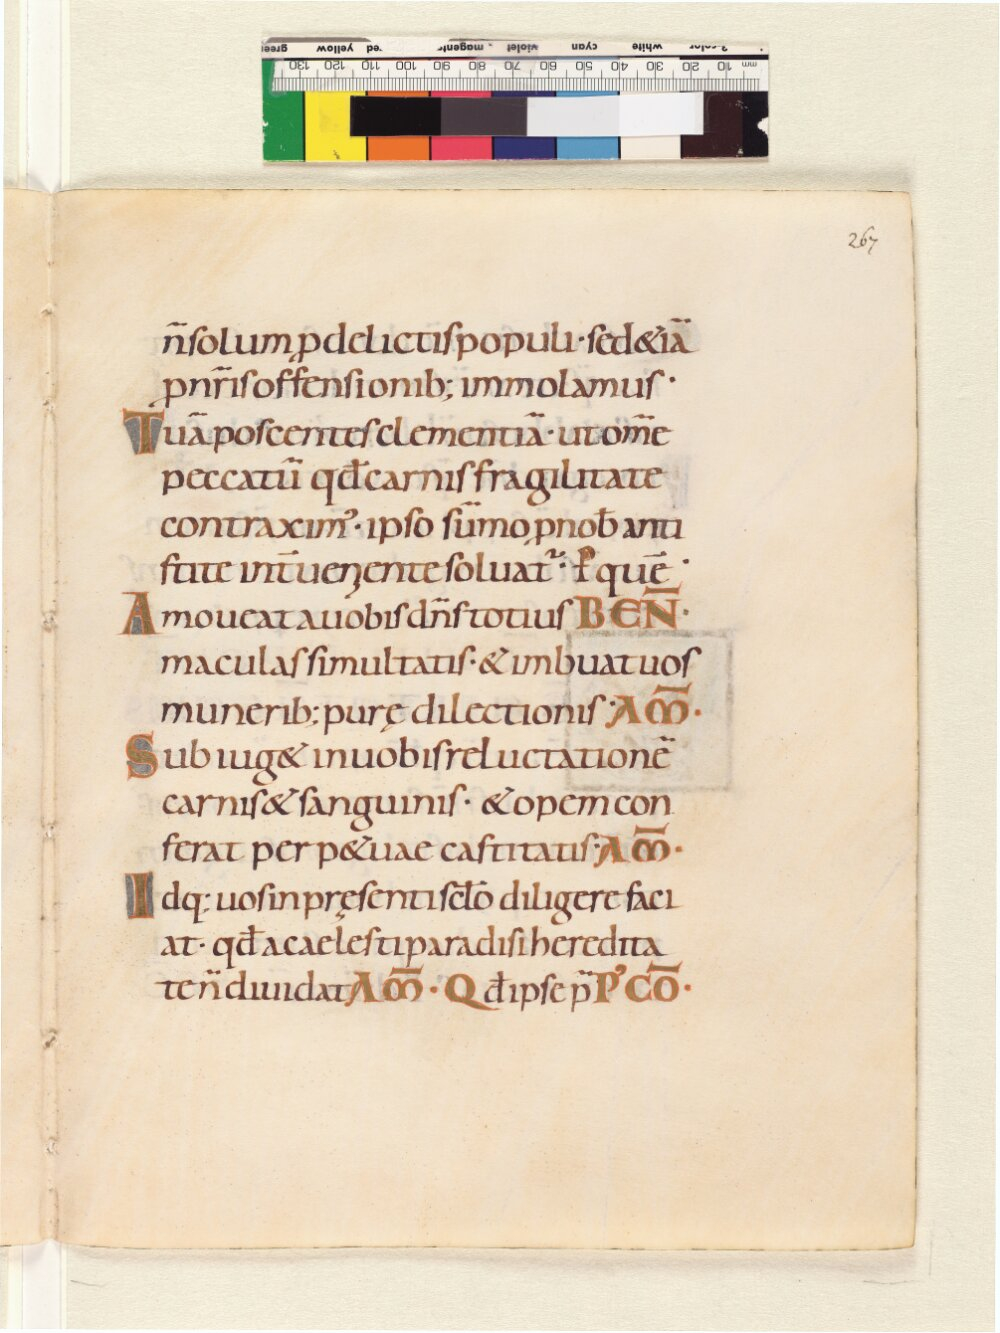 green yellow red magenta violet cyan white 3-color
130 120 110 100 90 80 70 60 50 40 30 20 10 mm
267
n̄ solum p̱ delictis populi · sed & iā
p̱ nr̄is offensionib; immolamus ·
Tuā poscentes clementiā · ut om̄e
peccatū qđ carnis fragilitate
contraximꝰ · ipso sūmo p̱ nob̄ anti
stite int̄ueniente soluat᷑ · P̱ quē ·
Amoueat a uobis dn̄s totius BEN̄ ·
maculas simultatis · & imbuat uos
munerib; purę dilectionis · AM̄ ·
Subiug& in uobis reluctationē
carnis & sanguinis · & opem con
ferat perp&uae castitatis · AM̄ ·
Idq; uos in pręsenti sc̄lo diligere faci
at · qđ a caelesti paradisi heredita
te n̄ diuidat AM̄ · Qđ ipse p̄ P' CŌ ·